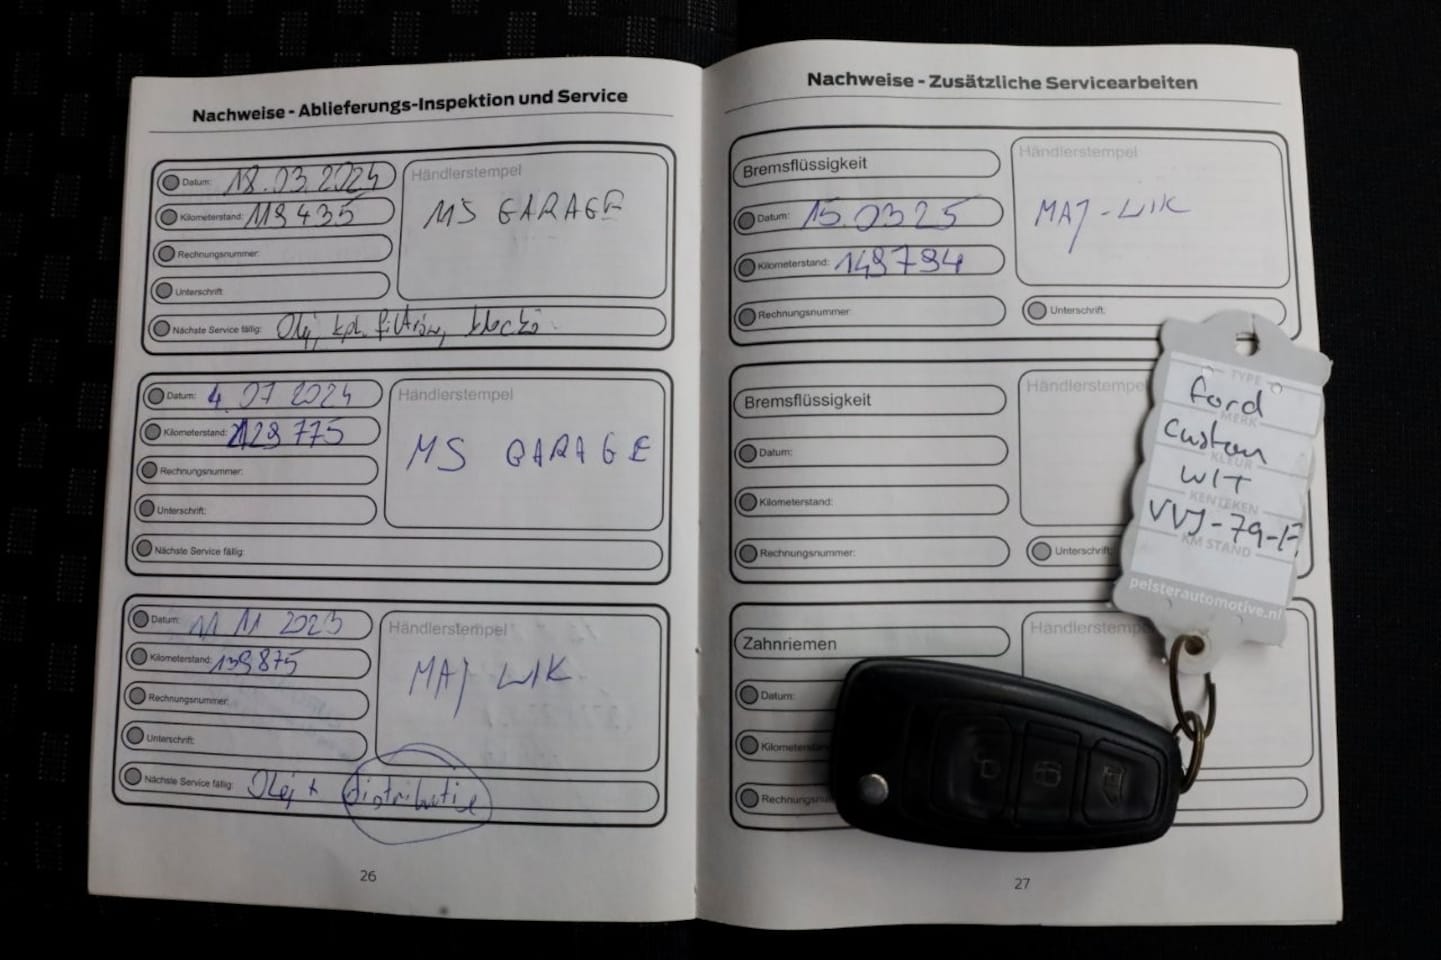 Nachweise - Ablieferungs-Inspektion und Service
Datum: 18.03.2024
Händlerstempel
Kilometerstand: 119435
MS GARAGE
Rechnungsnummer:
Unterschrift:
Nächste Service fällig: Olej, kpl. filtrów, klocki
Datum: 4.07 2024
Händlerstempel
Kilometerstand: 129 775
MS GARAGE
Rechnungsnummer:
Unterschrift:
Nächste Service fällig:
Datum: 11 11 2023
Händlerstempel
Kilometerstand: 139875
MAJ WIK
Rechnungsnummer:
Unterschrift:
Nächste Service fällig: Olej + distributie
26
Nachweise - Zusätzliche Servicearbeiten
Bremsflüssigkeit
Händlerstempel
Datum: 15.03.25
MAJ-WIK
Kilometerstand: 149794
Rechnungsnummer:
Unterschrift:
Bremsflüssigkeit
Händlerstempe
Datum:
Kilometerstand:
Rechnungsnummer:
Unterschrift:
Zahnriemen
Händlerstemp
Datum:
Kilometerstan
Rechnungsnu
27
TYPE
Ford
MERK
Custom
KLEUR
WIT
KENTEKEN
VVJ-79-F
KM STAND
pelsterautomotive.nl